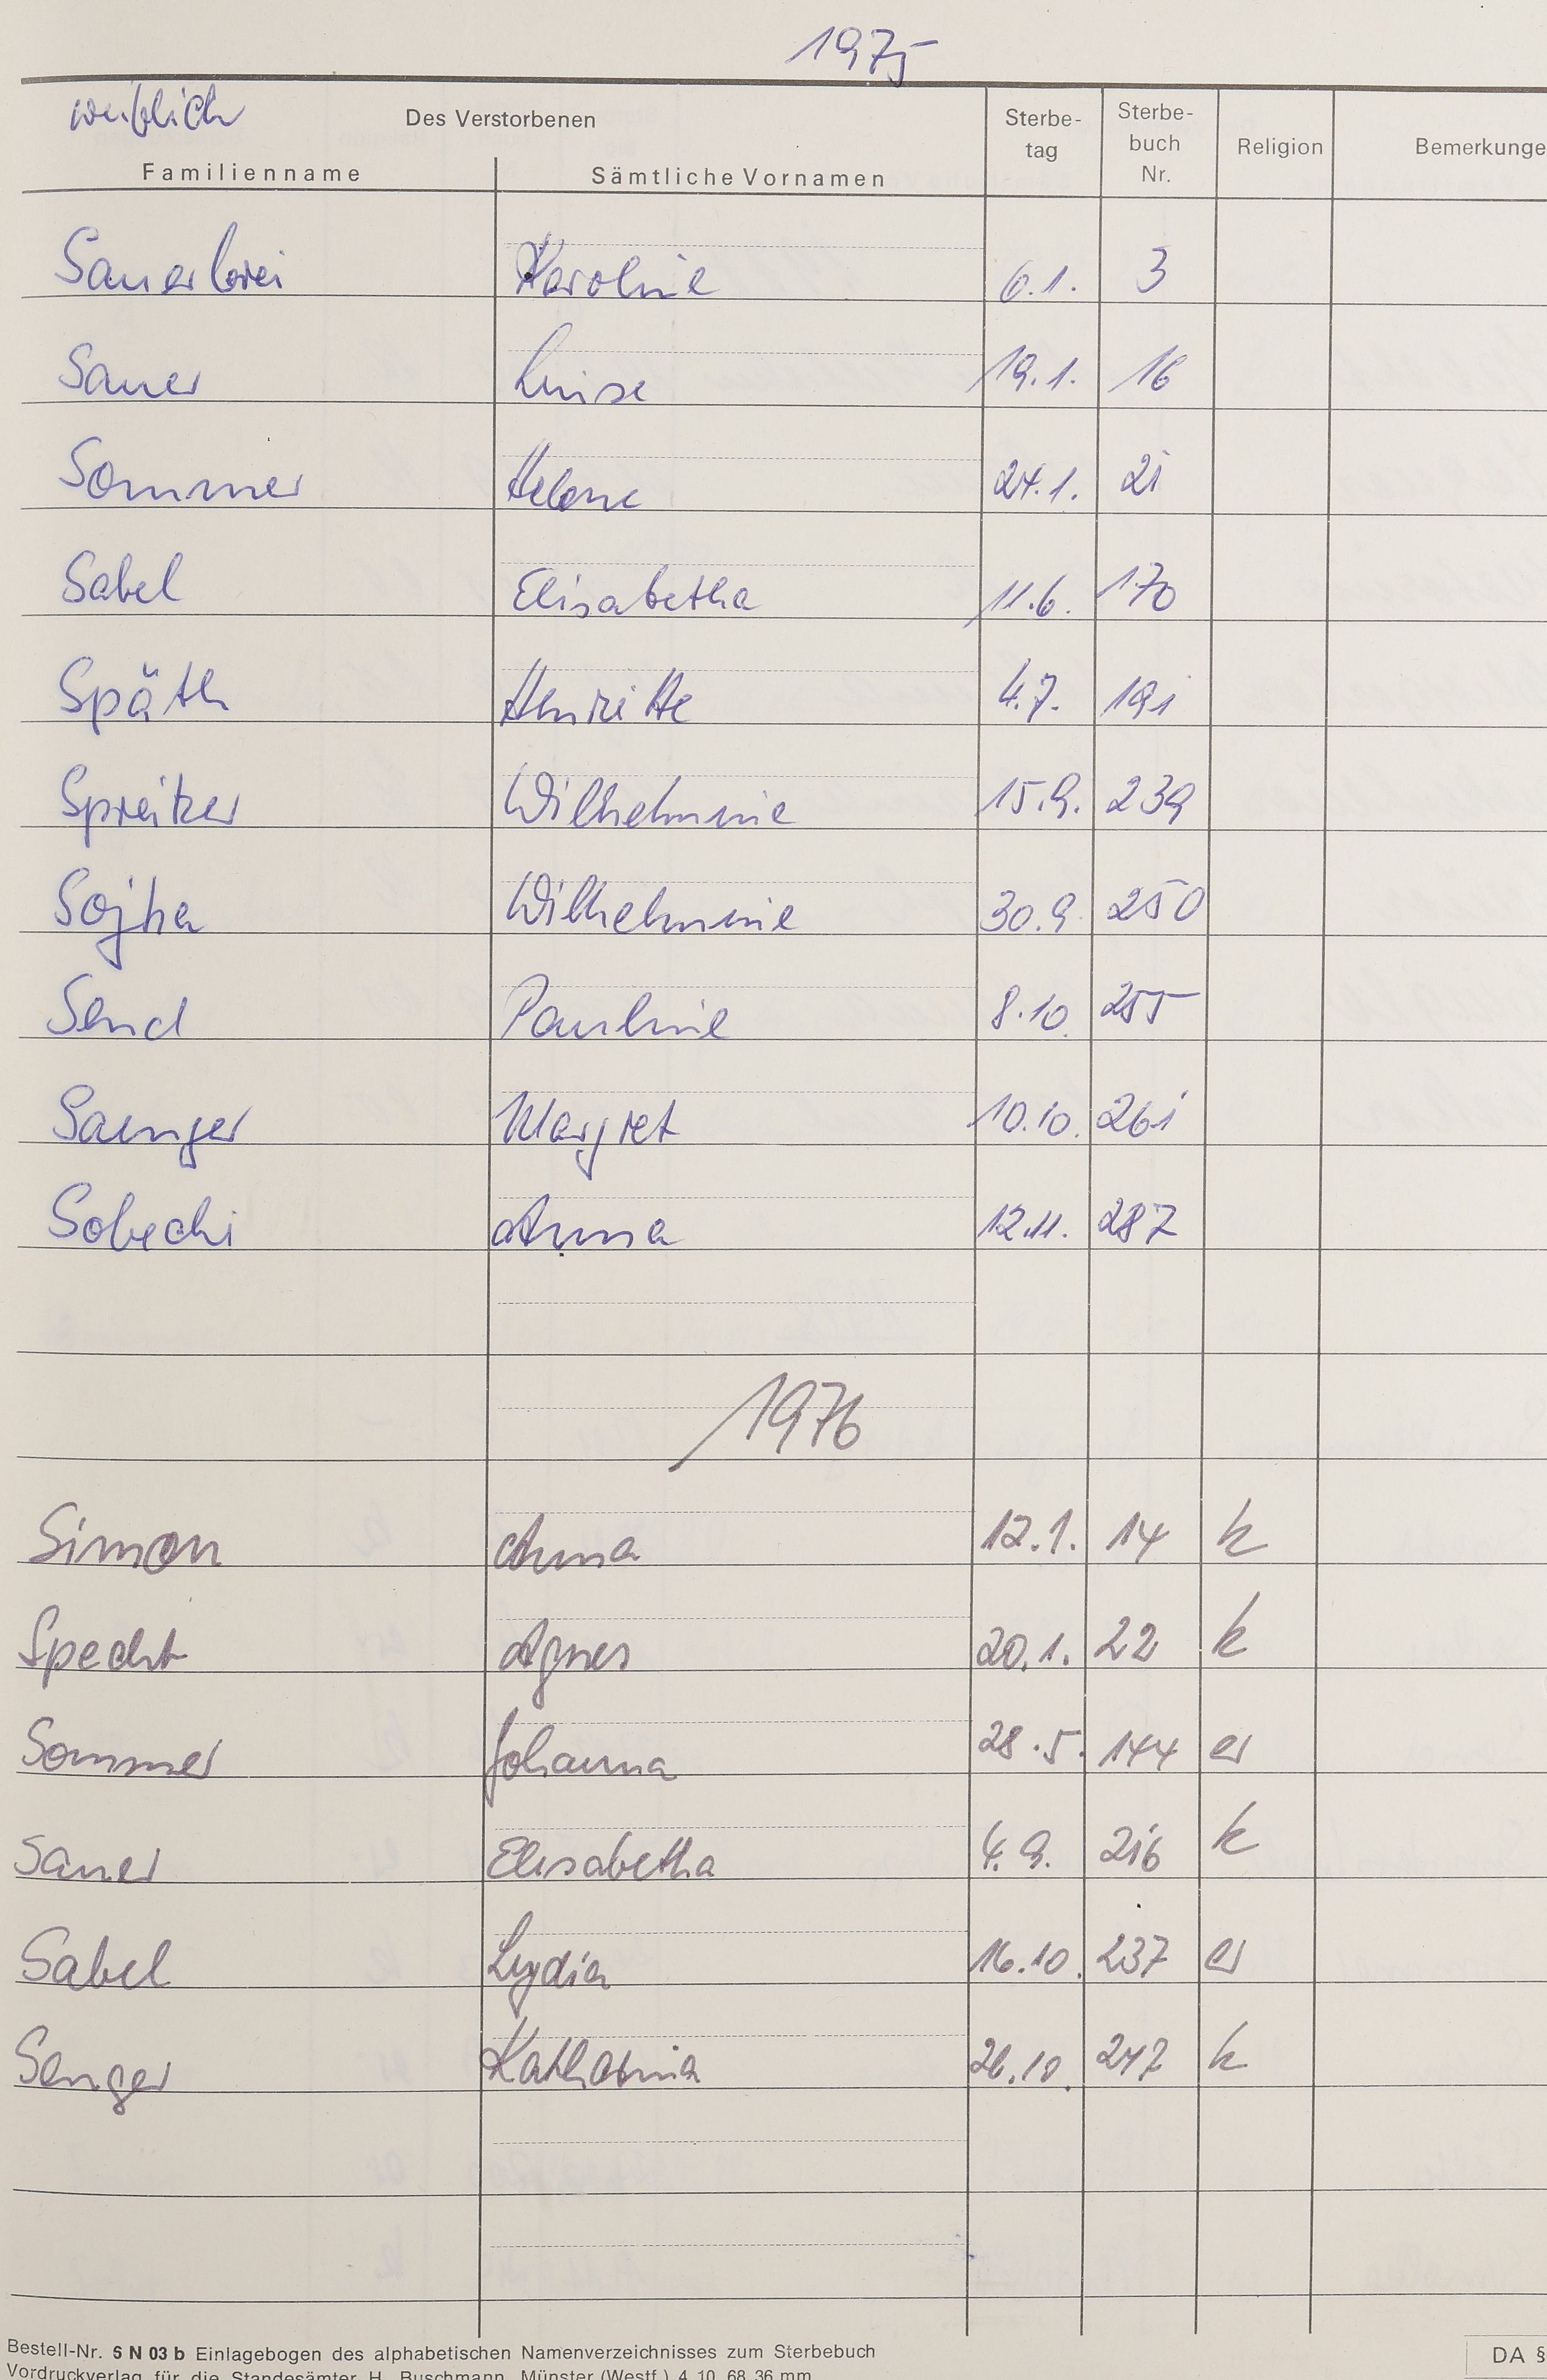 1975
weiblich
Des Verstorbenen
Familienname Sämtliche Vornamen Sterbe-tag Sterbe-buch Nr. Religion Bemerkunge
Sauerbrei Karoline 6.1. 3
Sauer Luise 19.1. 16
Sommer Helene 24.1. 21
Sabel Elisabetha 11.6. 170
Späth Henriette 4.7. 191
Spreitzer Wilhelmine 15.9. 239
Sojka Wilhelmine 30.9. 250
Send Pauline 8.10. 255
Saenger Margret 10.10. 261
Sobecki Anna 12.11. 287
1976
Simon Anna 12.1. 14 k
Specht Agnes 20.1. 22 k
Sommer Johanna 28.5. 144 ev
Sauer Elisabetha 4.9. 216 k
Sabel Lydia 16.10. 237 ev
Senger Katharina 26.10. 247 k
Bestell-Nr. 6 N 03 b Einlagebogen des alphabetischen Namenverzeichnisses zum Sterbebuch
Vordruckverlag für die Standesämter H. Buschmann, Münster (Westf.) 4. 10. 68. 36 mm
DA §